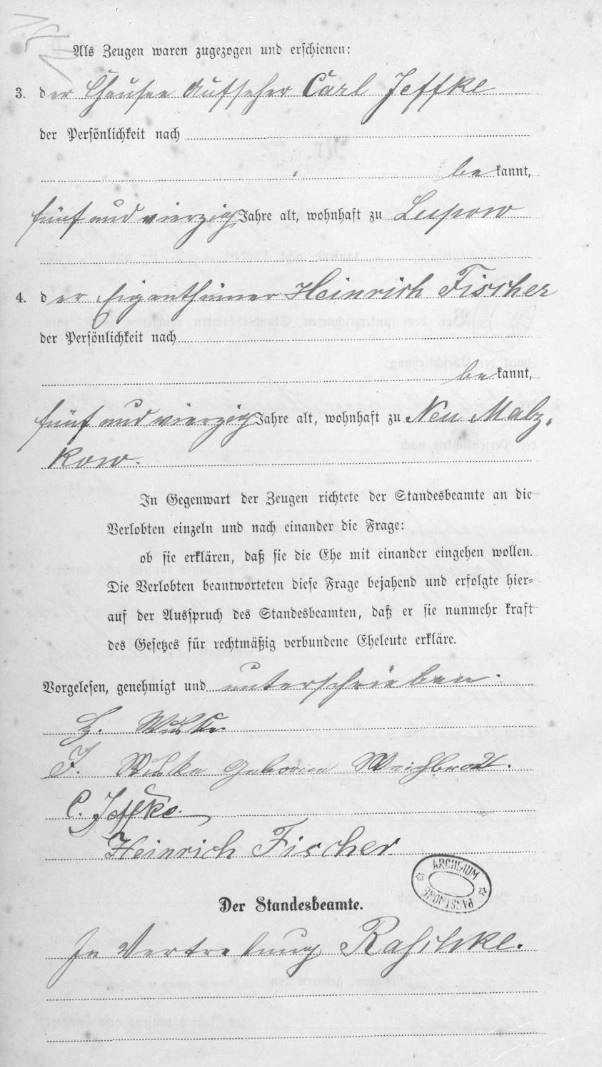 Als Zeugen waren zugezogen und erschienen:
3. der Chaussee Aufseher Carl Jeffke
der Persönlichkeit nach
bekannt,
fünf und vierzig Jahre alt, wohnhaft zu Lupow
4. der Eigenthümer Heinrich Fischer
der Persönlichkeit nach
bekannt,
fünf und vierzig Jahre alt, wohnhaft zu Neu Malz-
kow.
In Gegenwart der Zeugen richtete der Standesbeamte an die
Verlobten einzeln und nach einander die Frage:
ob sie erklären, daß sie die Ehe mit einander eingehen wollen.
Die Verlobten beantworteten diese Frage bejahend und erfolgte hier-
auf der Ausspruch des Standesbeamten, daß er sie nunmehr kraft
des Gesetzes für rechtmäßig verbundene Eheleute erkläre.
Vorgelesen, genehmigt und unterschrieben.
F. geborene
C. Jeffke
Heinrich Fischer
ARCHIVUM
Der Standesbeamte.
In Vertretung Raschke.